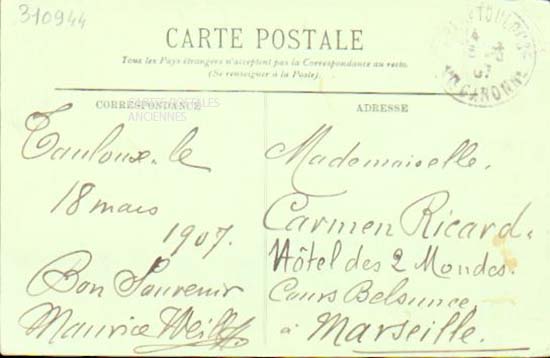 310944
CARTE POSTALE
Tous les Pays étrangers n'acceptent pas la Correspondance au recto.
(Se renseigner à la Poste).
CORRESPONDANCE
CARTES POSTALES
ANCIENNES
Toulouse. le
18 mars
1907.
Bon Souvenir
Maurice Weill
ADRESSE
Mademoiselle.
Carmen Ricard.
Hôtel des 2 Mondes.
Cours Belsunce
à Marseille.
TOULOUSE
GARONNE